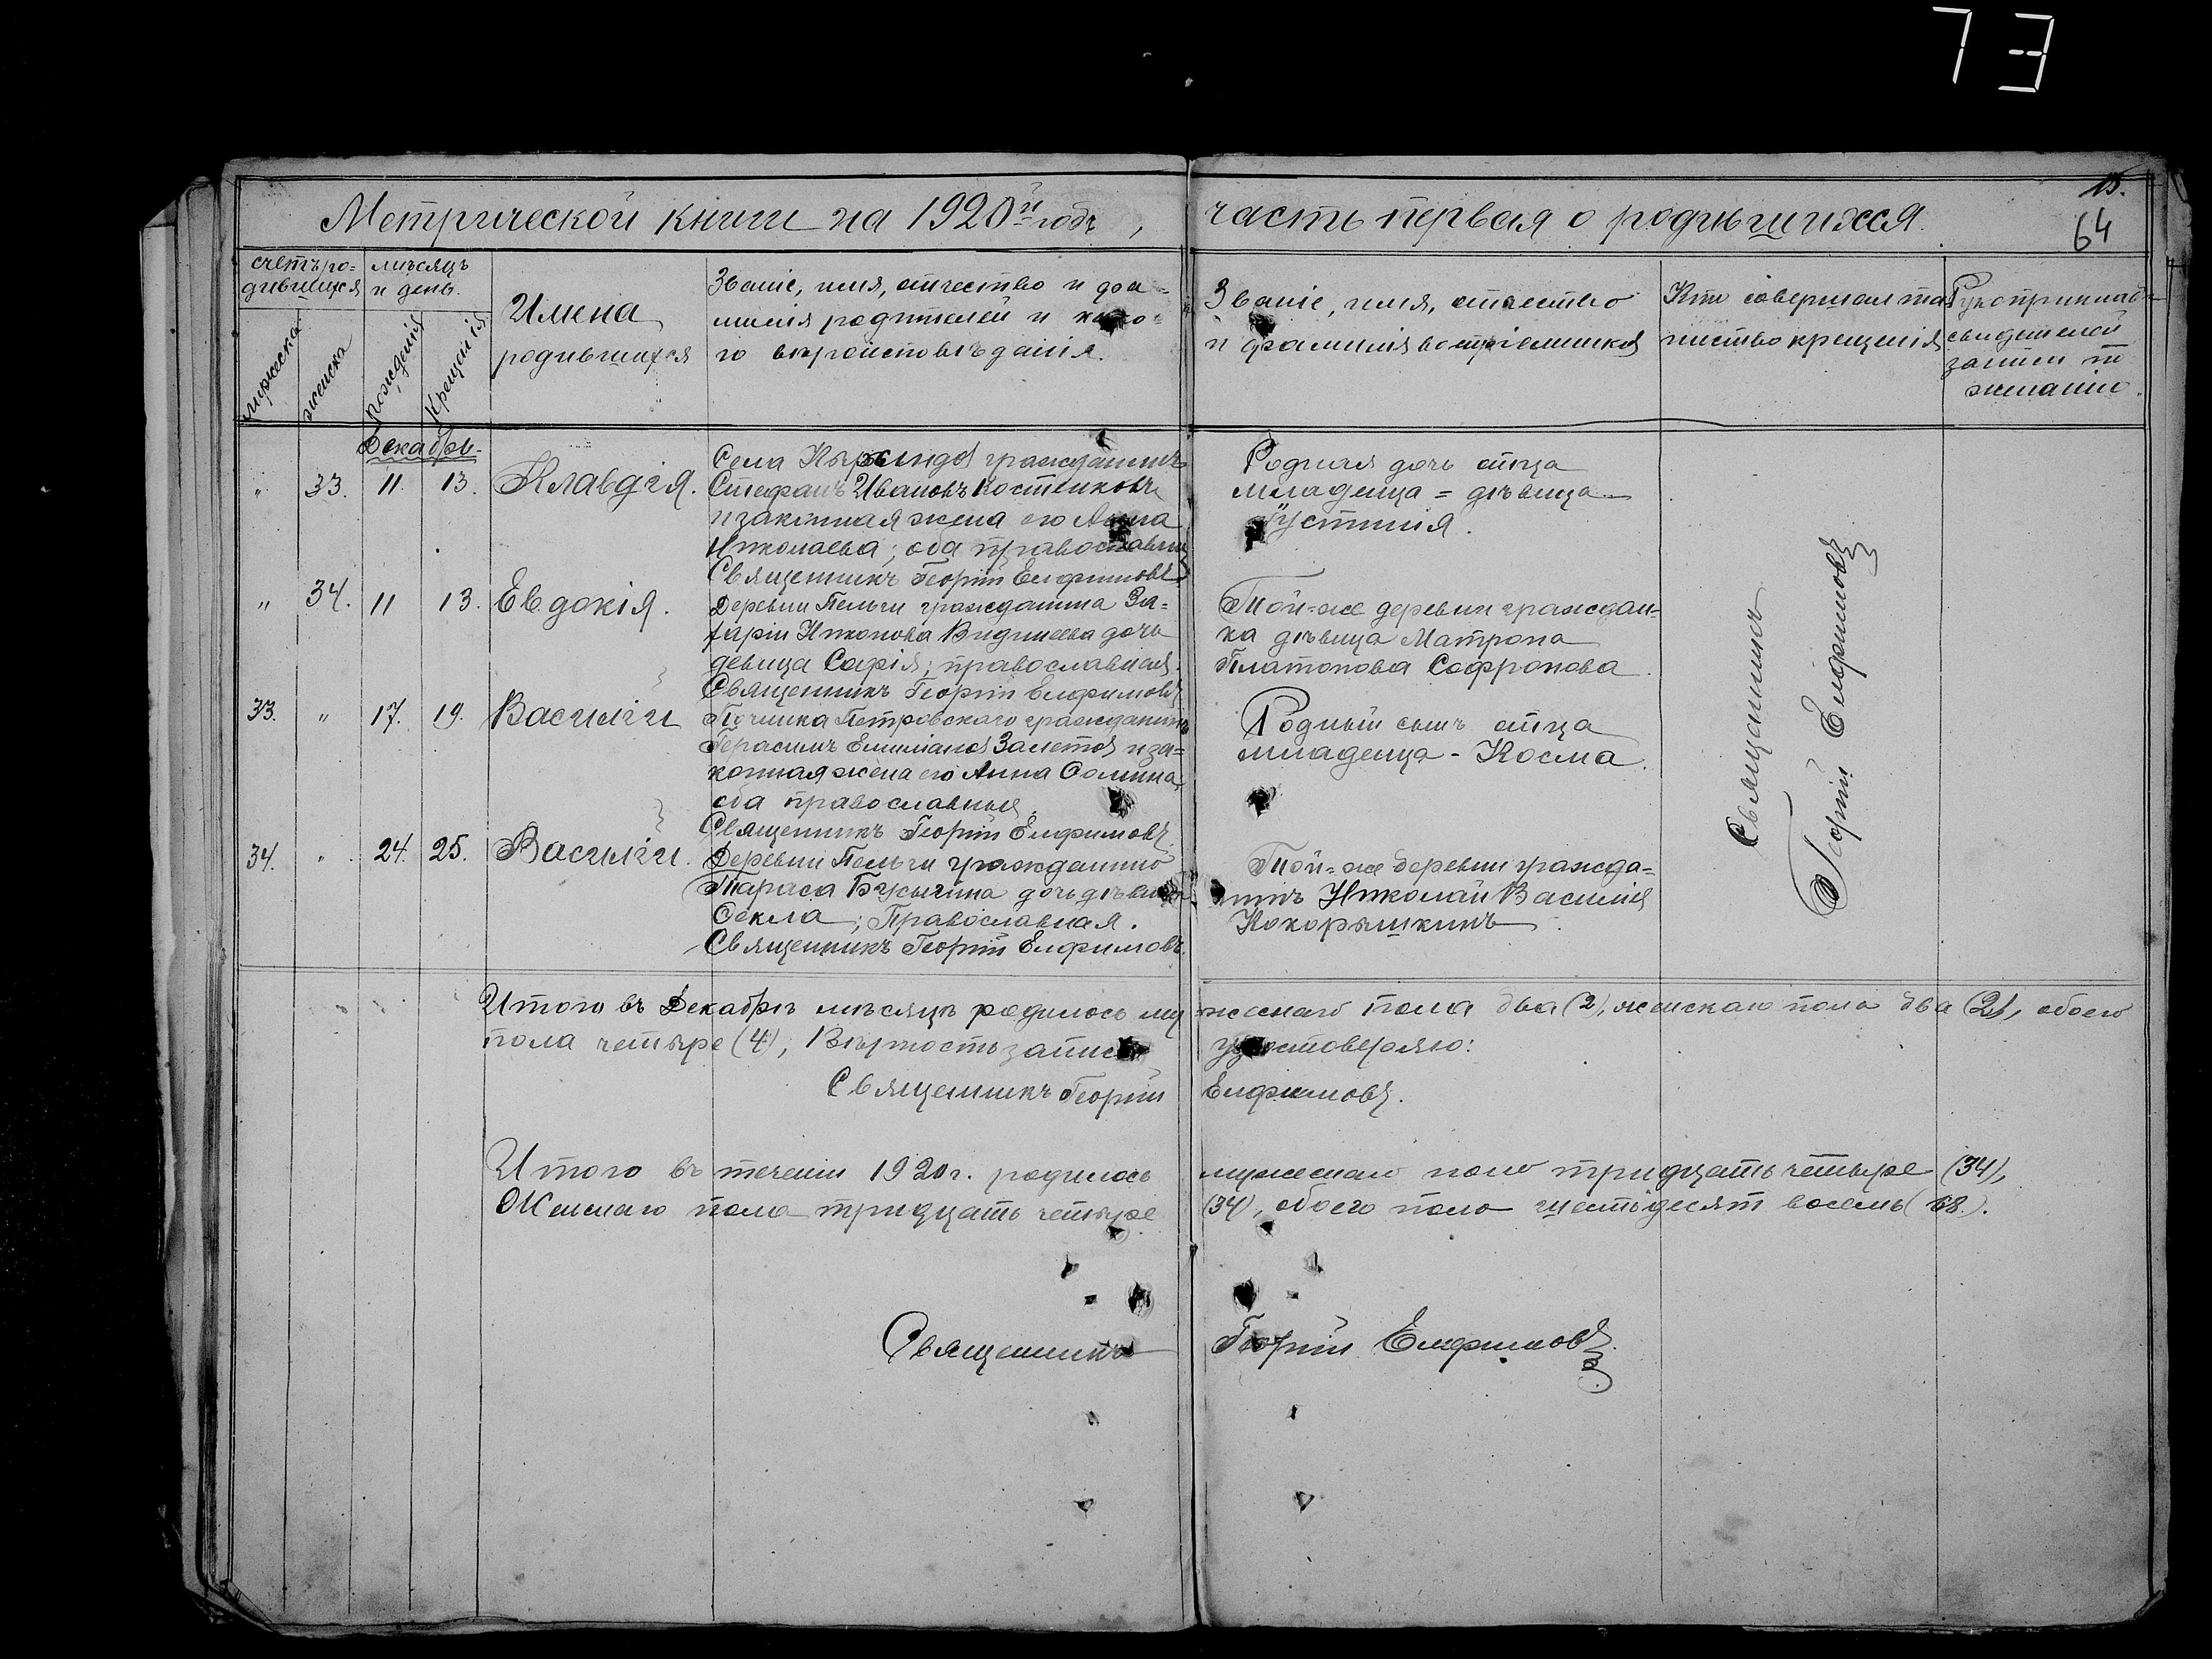 73
15.
64
Метрической книги на 1920й годъ, часть первая о родившихся.
счетъ ро=
дившихся
мужеска
женска
мѣсяцъ
и день.
рожденія
крещенія
Имена
родившихся
Званіе, имя, отчество и фа=
милія родителей и како=
го вѣроисповѣданія.
Званіе, имя, отчество
и фамилія воспріемниковъ
Кто совершалъ та=
инство крещенія
Рукоприклад=
свидетелей
записи по
желанію.
Декабрь.
" 33. 11. 13. Клавдія.
Села гражданинъ
Стефанъ Ивановъ Костенковъ
и законная жена его Анна
Николаева; оба православны
Священникъ Георгій Елфимовъ
Родная дочь отца
младенца = дѣвица
Устинія.
" 34. 11 13. Евдокія.
Деревни Пельги гражданина За=
харіи Никонова дочь
девица Софія; православная.
Священникъ Георгій Елфимовъ
Той-же деревни граждан=
ка дѣвица Матрона
Платонова Софронова.
33. " 17. 19. Василій
Починка Петровскаго гражданинъ
Герасимъ Емиліановъ и за=
конная жена его Анна Ѳомина,
оба православныя.
Священникъ Георгій Елфимовъ.
Родный сынъ отца
младенца - Косма.
34. " 24. 25. Василій.
Деревни Пельги гражданина
Тараса дочь дѣвица
Ѳекла; Православная.
Священникъ Георгій Елфимовъ.
Той-же деревни гражда=
нинъ Николай Василіевъ
Кокорышкинъ.
Священникъ
Георгій Елфимовъ
Итого въ Декабрѣ мѣсяцѣ родилось мужескаго пола два (2), женскаго пола два (2), обоего
пола четыре (4); Вѣрность записи удостоверяю:
Священникъ Георгій Елфимовъ.
Итого въ теченіи 1920 г. родилось мужескаго пола тридцать четыре (34),
Женскаго пола тридцать четыре (34), обоего пола шестьдесят восемь (68).
Священникъ Георгій Елфимовъ.